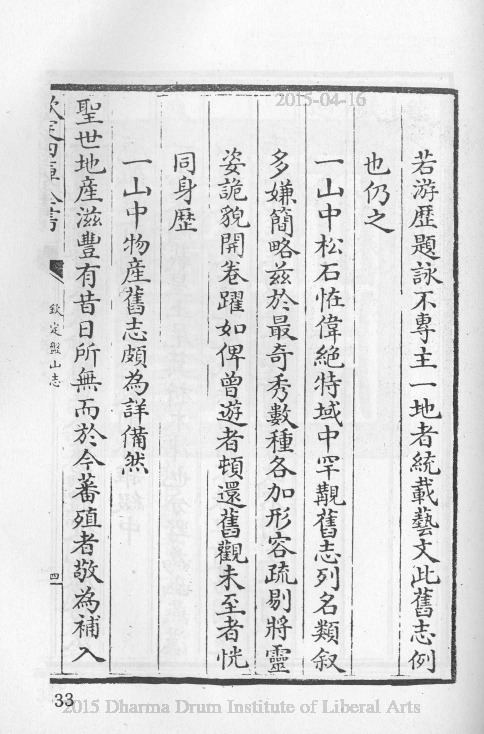 2015-04-16
若游歷題詠不專主一地者統載藝文此舊志例
也仍之
一山中松石恠偉絶特域中罕覯舊志列名類叙
多嫌簡略兹於最奇秀數種各加形容疏剔將靈
姿詭貌開卷躍如俾曾遊者頓還舊觀未至者恍
同身歷
一山中物產舊志頗為詳備然
聖世地產滋豐有昔日所無而於今蕃殖者敬為補入
欽定四庫全書
欽定盤山志
四
33
2015 Dharma Drum Institute of Liberal Arts